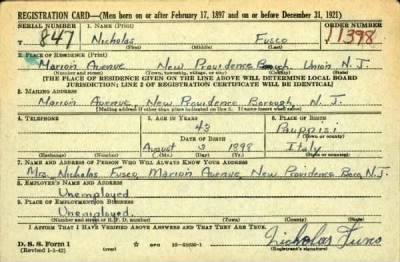 REGISTRATION CARD—(Men born on or after February 17, 1897 and on or before December 31, 1921)
SERIAL NUMBER 1. NAME (Print) ORDER NUMBER
847 Nicholas Fusco 11398
(First) (Middle) (Last)
2. PLACE OF RESIDENCE (Print)
Marion Avenue New Providence Union N. J.
(Number and street) (Town, township, village, or city) (County) (State)
[THE PLACE OF RESIDENCE GIVEN ON THE LINE ABOVE WILL DETERMINE LOCAL BOARD
JURISDICTION; LINE 2 OF REGISTRATION CERTIFICATE WILL BE IDENTICAL]
3. MAILING ADDRESS
Marion Avenue, New Providence Borough, N. J.
[Mailing address if other than place indicated on line 2. If same insert word same]
4. TELEPHONE 5. AGE IN YEARS 6. PLACE OF BIRTH
43
DATE OF BIRTH (Town or county)
August 3 1898 Italy
(Exchange) (Number) (Mo.) (Day) (Yr.) (State or country)
7. NAME AND ADDRESS OF PERSON WHO WILL ALWAYS KNOW YOUR ADDRESS
Mrs. Nicholas Fusco, Marion Avenue, New Providence Boro, N.J.
8. EMPLOYER'S NAME AND ADDRESS
Unemployed
9. PLACE OF EMPLOYMENT OR BUSINESS
Unemployed
(Number and street or R. F. D. number) (Town) (County) (State)
I AFFIRM THAT I HAVE VERIFIED ABOVE ANSWERS AND THAT THEY ARE TRUE.
D. S. S. Form 1
(Revised 1-1-42) GPO Nicholas
(Registrant's signature)